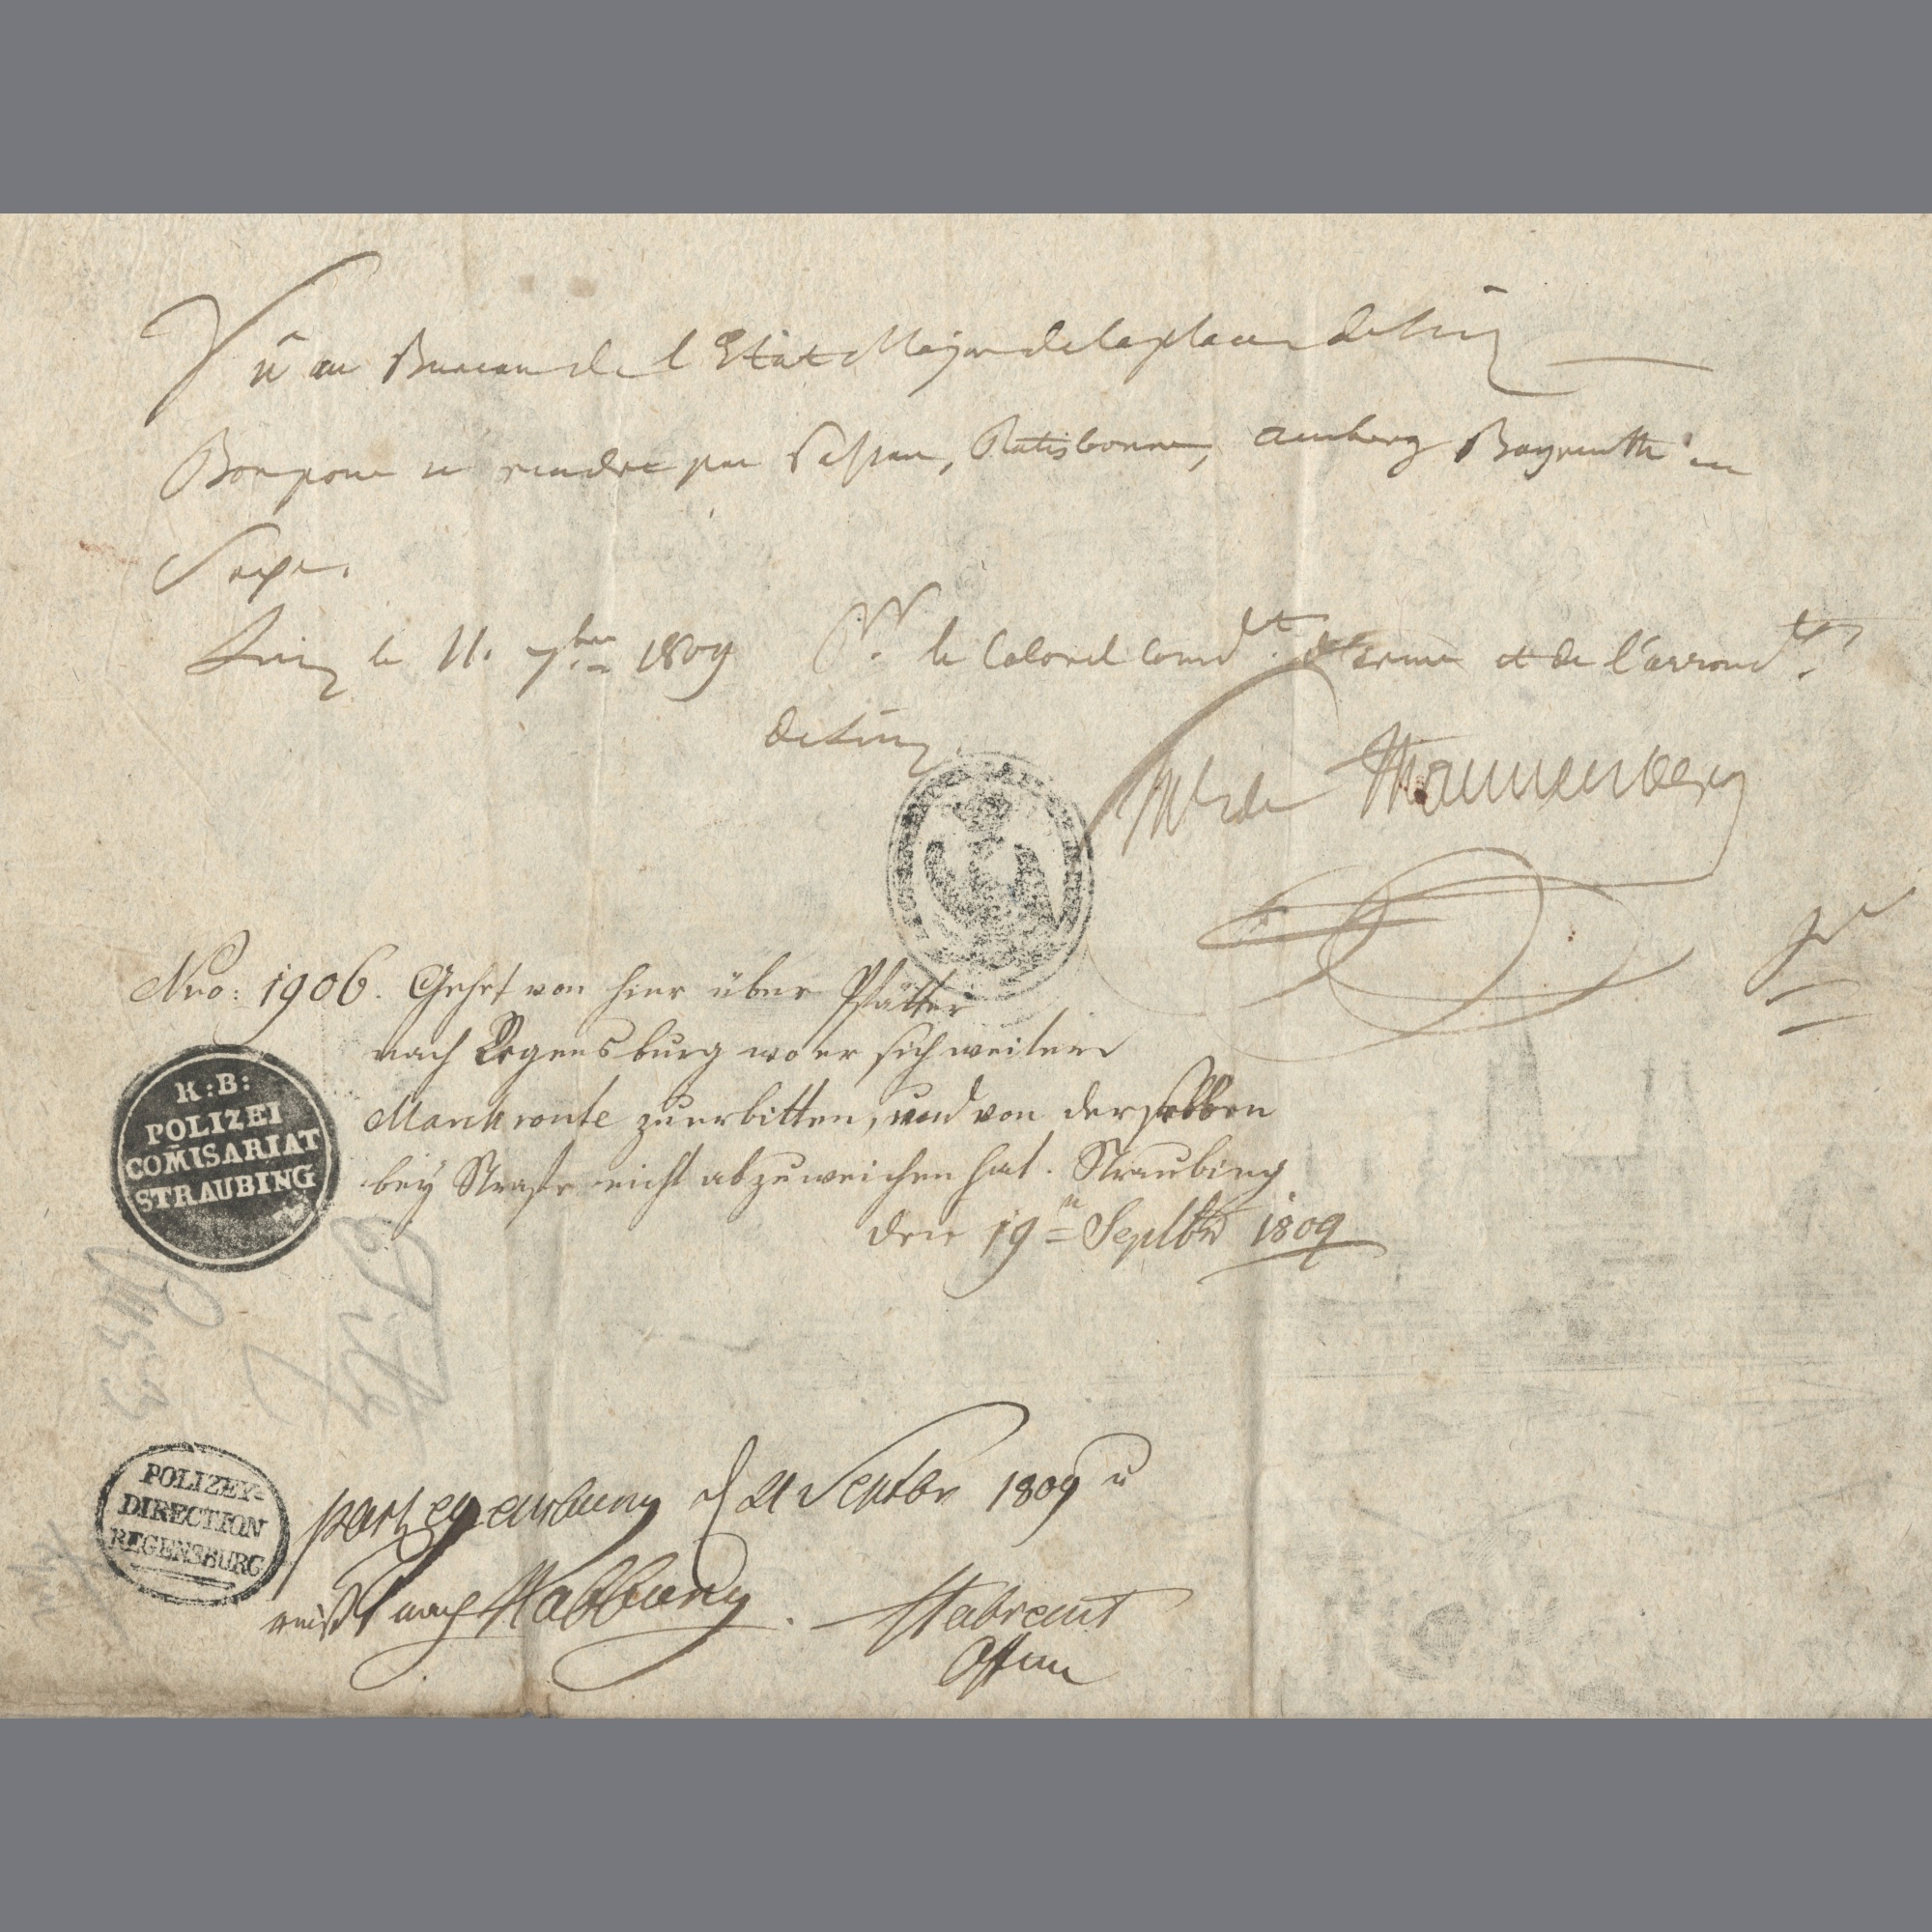 Vû au Bureau de l'Etat Major de la place de Linz
Bon pour se rendre par Passau, Ratisbonne, Amberg Bayreuth en
Saxe.
Linz le 11. 7bre 1809 le Colonel Comdt. d'armes et de l'arrondt.
de Linz
de Thannenberg
Nro: 1906. Gehet von hier über Pfätter
nach Regensburg wo er sich weitere
Marschroute zu erbitten, und von derselben
bey Strafe nicht abzuweichen hat. Straubing
den 19n Septbr 1809
K:B:
POLIZEI
COMISARIAT
STRAUBING
POLIZEY-
DIRECTION
REGENSBURG
Regensburg d 21 Septbr 1809
nach